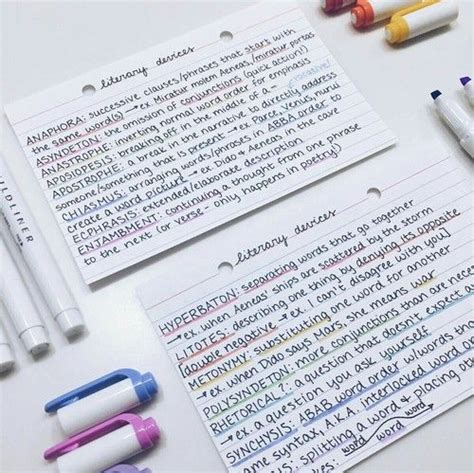 literary devices
ANAPHORA: successive clauses/phrases that start with
the same word(s) → ex. Miratur molem Aeneas,/miratur portas
ASYNDETON: the omission of conjunctions (quick action!)
ANASTROPHE: inverting normal word order for emphasis
APOSIOPESIS: breaking off in the middle of a –
APOSTROPHE: a break in the narrative to directly address
someone/something that is present → ex. Parce, Venus, Furu
CHIASMUS: arranging words/phrases in ABBA order to
create a word picture → ex. Dido + Aeneas in the cave
ECPHRASIS: extended/elaborate description
ENJAMBMENT: continuing a thought from one phrase
to the next (or verse - only happens in poetry!)
ILDLINER
literary devices
HYPERBATON: separating words that go together
→ ex. when Aeneas' ships are scattered by the storm
LITOTES: describing one thing by denying its opposite
[double negative → ex. I can't disagree with you]
METONYMY: substituting one word for another
→ ex. when Dido says Mars, she means war
POLYSYNDETON: more conjunctions than are need
RHETORICAL ?: a question that doesn't expect
→ ex. a question you ask yourself
SYNCHYSIS: ABAB word order w/words tha
ame syntax, A.K.A. interlocked word
: splitting a word & placing
es: word word word